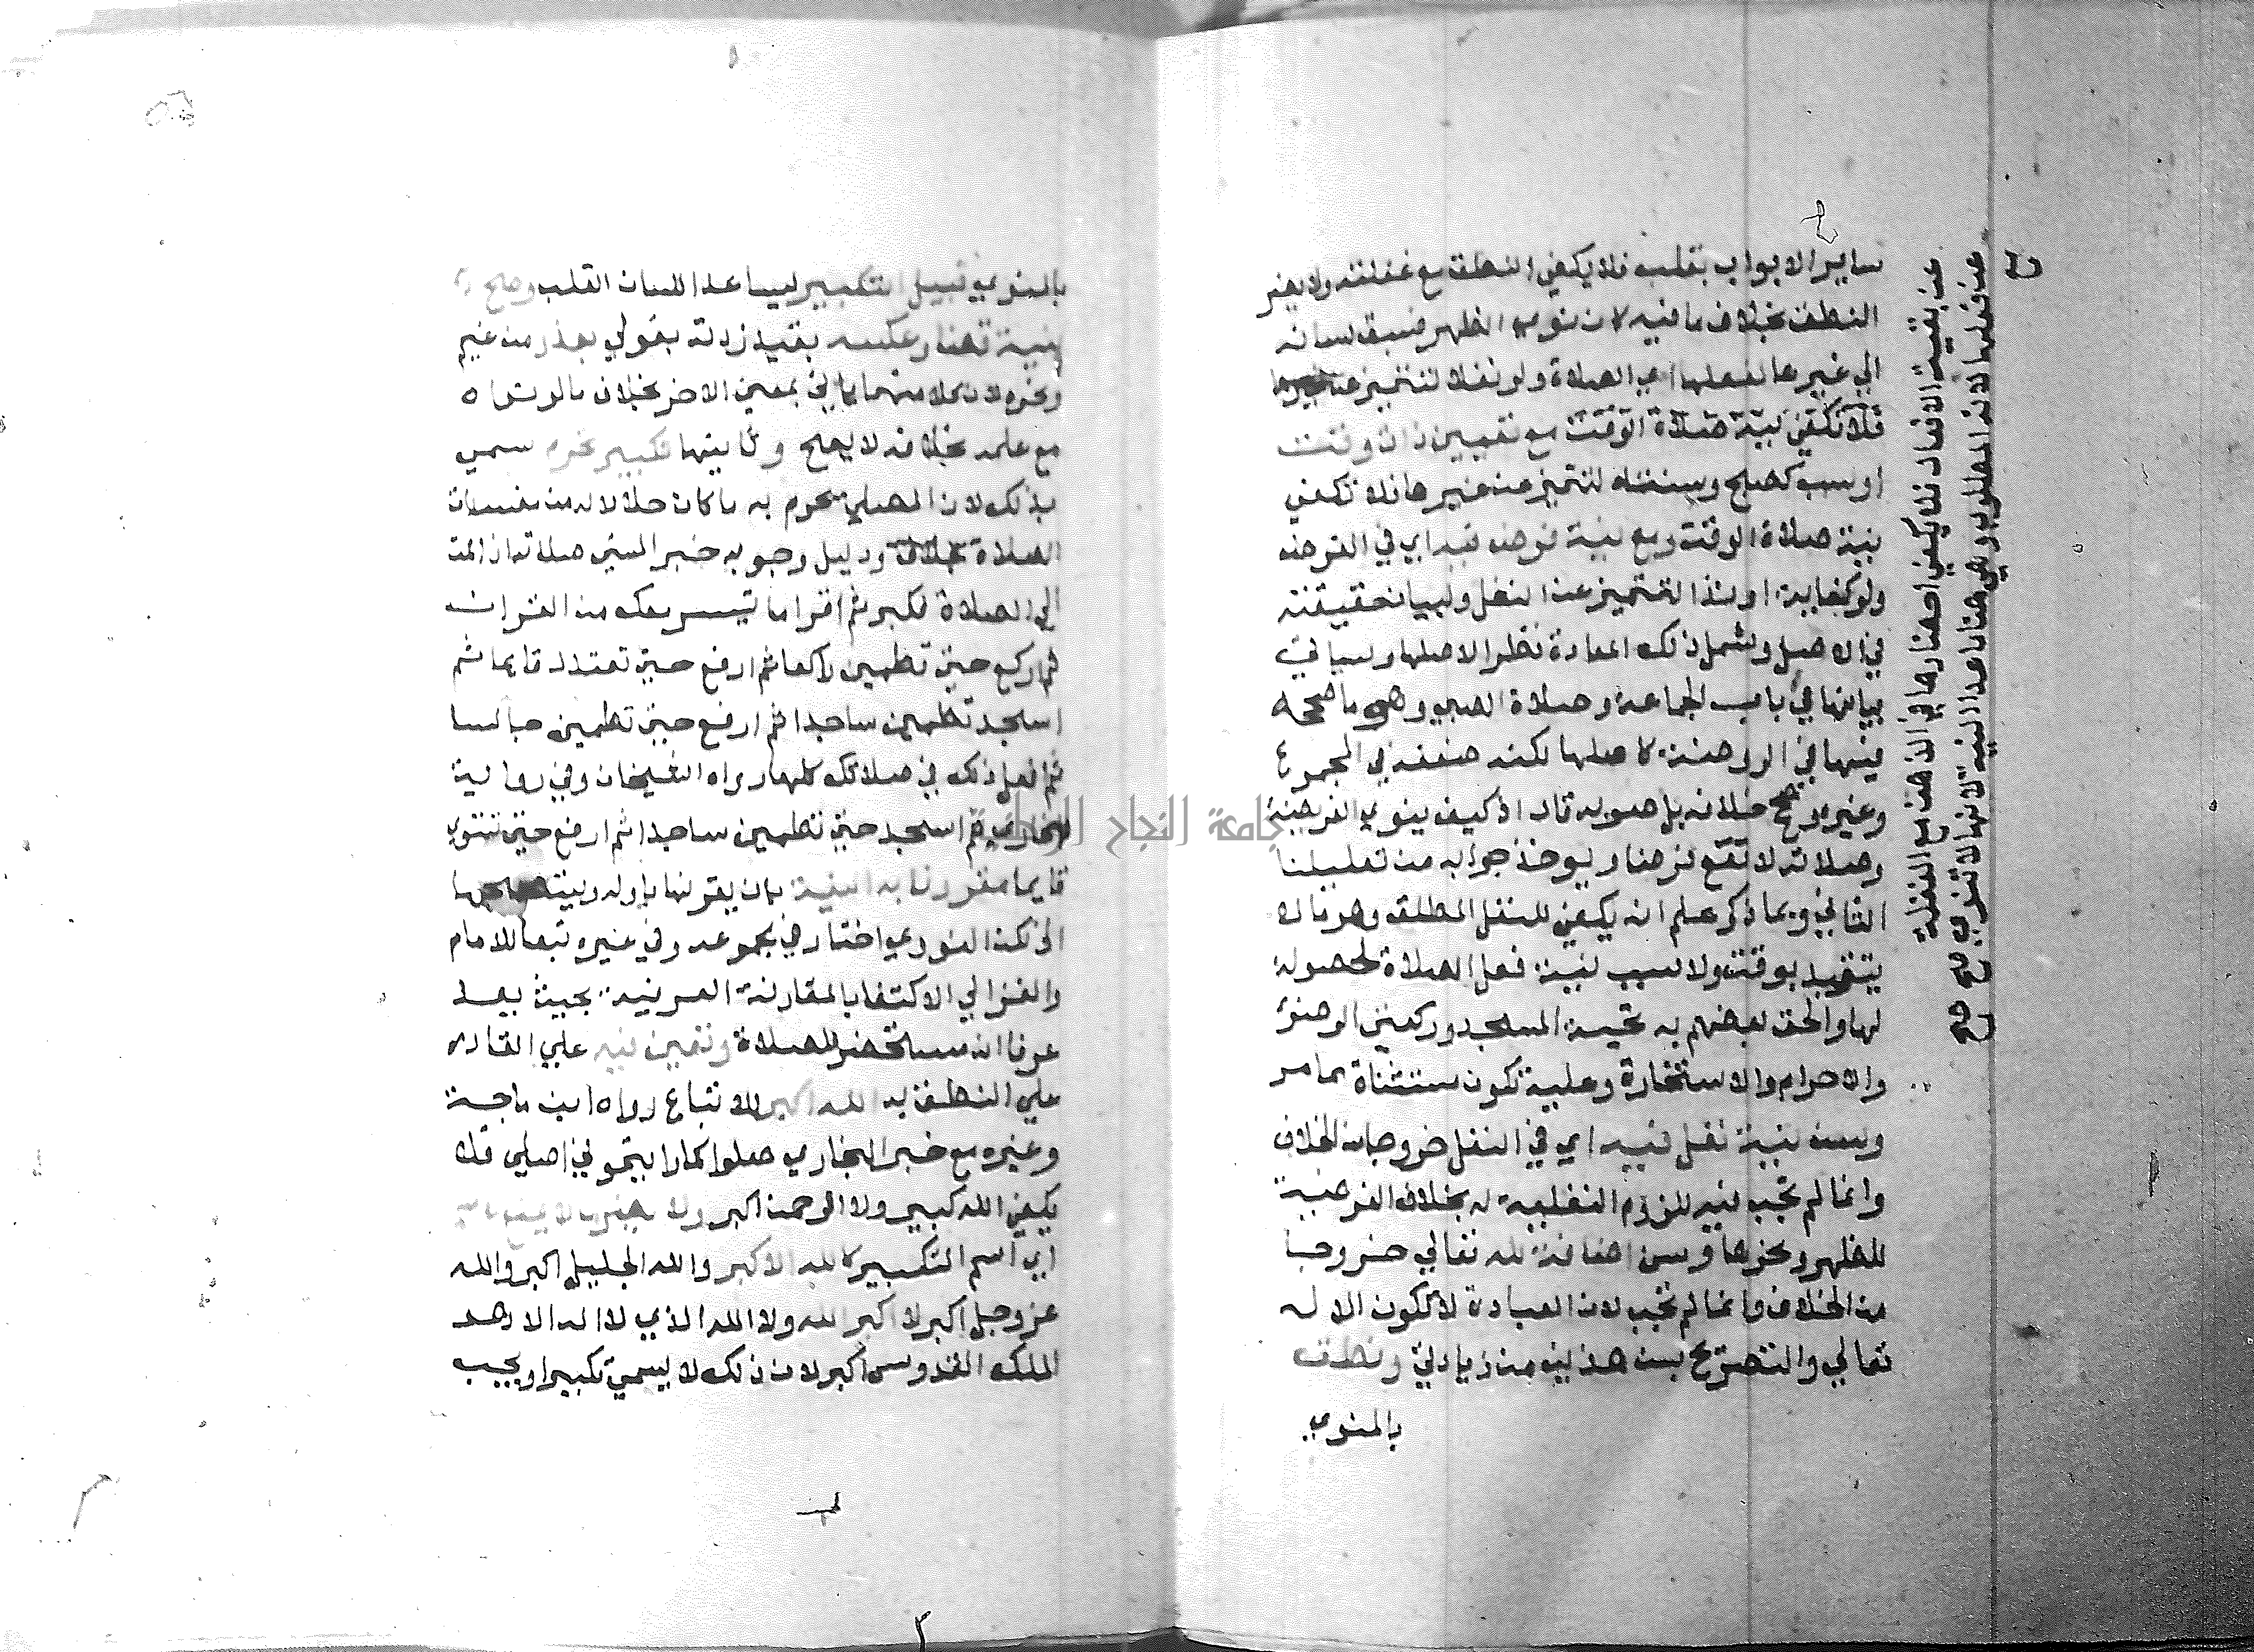 ساير الابواب بقلب فلا يكفي النطق مع غفلته ولا يضر
النطق بخلاف ما فيه كان نوي الظهر فسبق لسانه
الي غيرها لفعلها اي الصلاة ولو نفلا لتتميز عن غيرها
فلا تكفي نية صلاة الوقت مع تعيين ذات وقت
او سبب كصبح وسنته لتتميز عن غيرها فلا تكفي
نية صلاة الوقت ومع نية فرض فيه اي في الفرض
ولو كفاية او نذرا لتتميز عن النفل ولبيان حقيقته
في الاصل وشمل ذلك المعادة نظرا لاصلها وسياتي
بيانها في باب الجماعة وصلاة الصبي وهو ما صححه
فيها في الروضة كاصلها لكنه ضعفه في المجموع
وغيره وصحح خلافه بل صوبه قال اذ كيف ينوي الفرضية
وصلاته لا تقع فرضا ويوخذ جوابه من تعليلنا
الثاني وبما ذكر علم انه يكفي للنفل المطلق وهو ما لا
يتقيد بوقت ولا سبب نية فعل الصلاة لحصوله
لها والحق بعضهم به تحية المسجد وركعتي الوضوء
والاحرام والاستخارة وعليه تكون مستثناة مما مر
وسن نية نفل فيه اي في النفل خروجا من الخلاف
وانما لم تجب نيه للزوم النفلية له بخلاف الفرضية
للظهر ونحوها وسن اضافة لله تعالي خروجا
من الخلاف وانما لم تجب لان العبادة لا تكون الا له
تعالي والتصريح بسن هذين من زيادتي ونطق
بالمنوي
عن فعلها لانه المطلوب وهي هنا ما عدا النية لانها لا تنوي صح
عن بقية الافعال فلا يكفي احضارها في الذهن مع الغفلة صح
بالمنوي قبيل التكبير ليساعد اللسان القلب وصح
بنية قضا وعكسه بقيد زدته بقولي بعذر من غيم
ونحوه لان كلا منهما ياتي بمعني الاخر بخلاف مالو نواه
مع علمه بخلافه لا يصح وثانيها تكبير تحرم سمي
بذلك لان المصلي يحرم به ما كان حلالا له من مفسدات
الصلاة ودليل وجوبه خبر المسي صلاته اذا قمت
الي الصلاة فكبر ثم اقرا ما تيسر معك من القران
ثم اركع حتي تطمين راكعا ثم ارفع حتي تعتدل قايما ثم
اسجد تطمين ساجدا ثم ارفع حتي تطمين جالسا
ثم افعل ذلك في صلاتك كلها رواه الشيخان وفي رواية
للبخاري ثم اسجد حتي تطمين ساجدا ثم ارفع حتي تستوي
قايما مقرونا به النية بان يقرنها باوله ويستصحبها
الي لكن النووي اختار في مجموعه وفي غيره تبعا للامام
والغزالي الاكتفا بالمقارنة العرفية بحيث يعد
عرفا انه مستحضر للصلاة وتعين فيه علي القادر
علي النطق به الله اكبر للاتباع رواه ابن ماجة
وغيره مع خبر البخاري صلوا كما رايتموني اصلي فلا
يكفي الله كبير ولا الرحمن اكبر ولا يضر ما لا يمنع الاسم
اي اسم التكبير كالله الاكبر والله الجليل اكبر والله
عز وجل اكبر لا اكبر الله ولا الله الذي لا اله الا هو
الملك القدوس اكبر لان ذلك لا يسمي تكبيرا ويجب
جامعة النجاح الوطنية